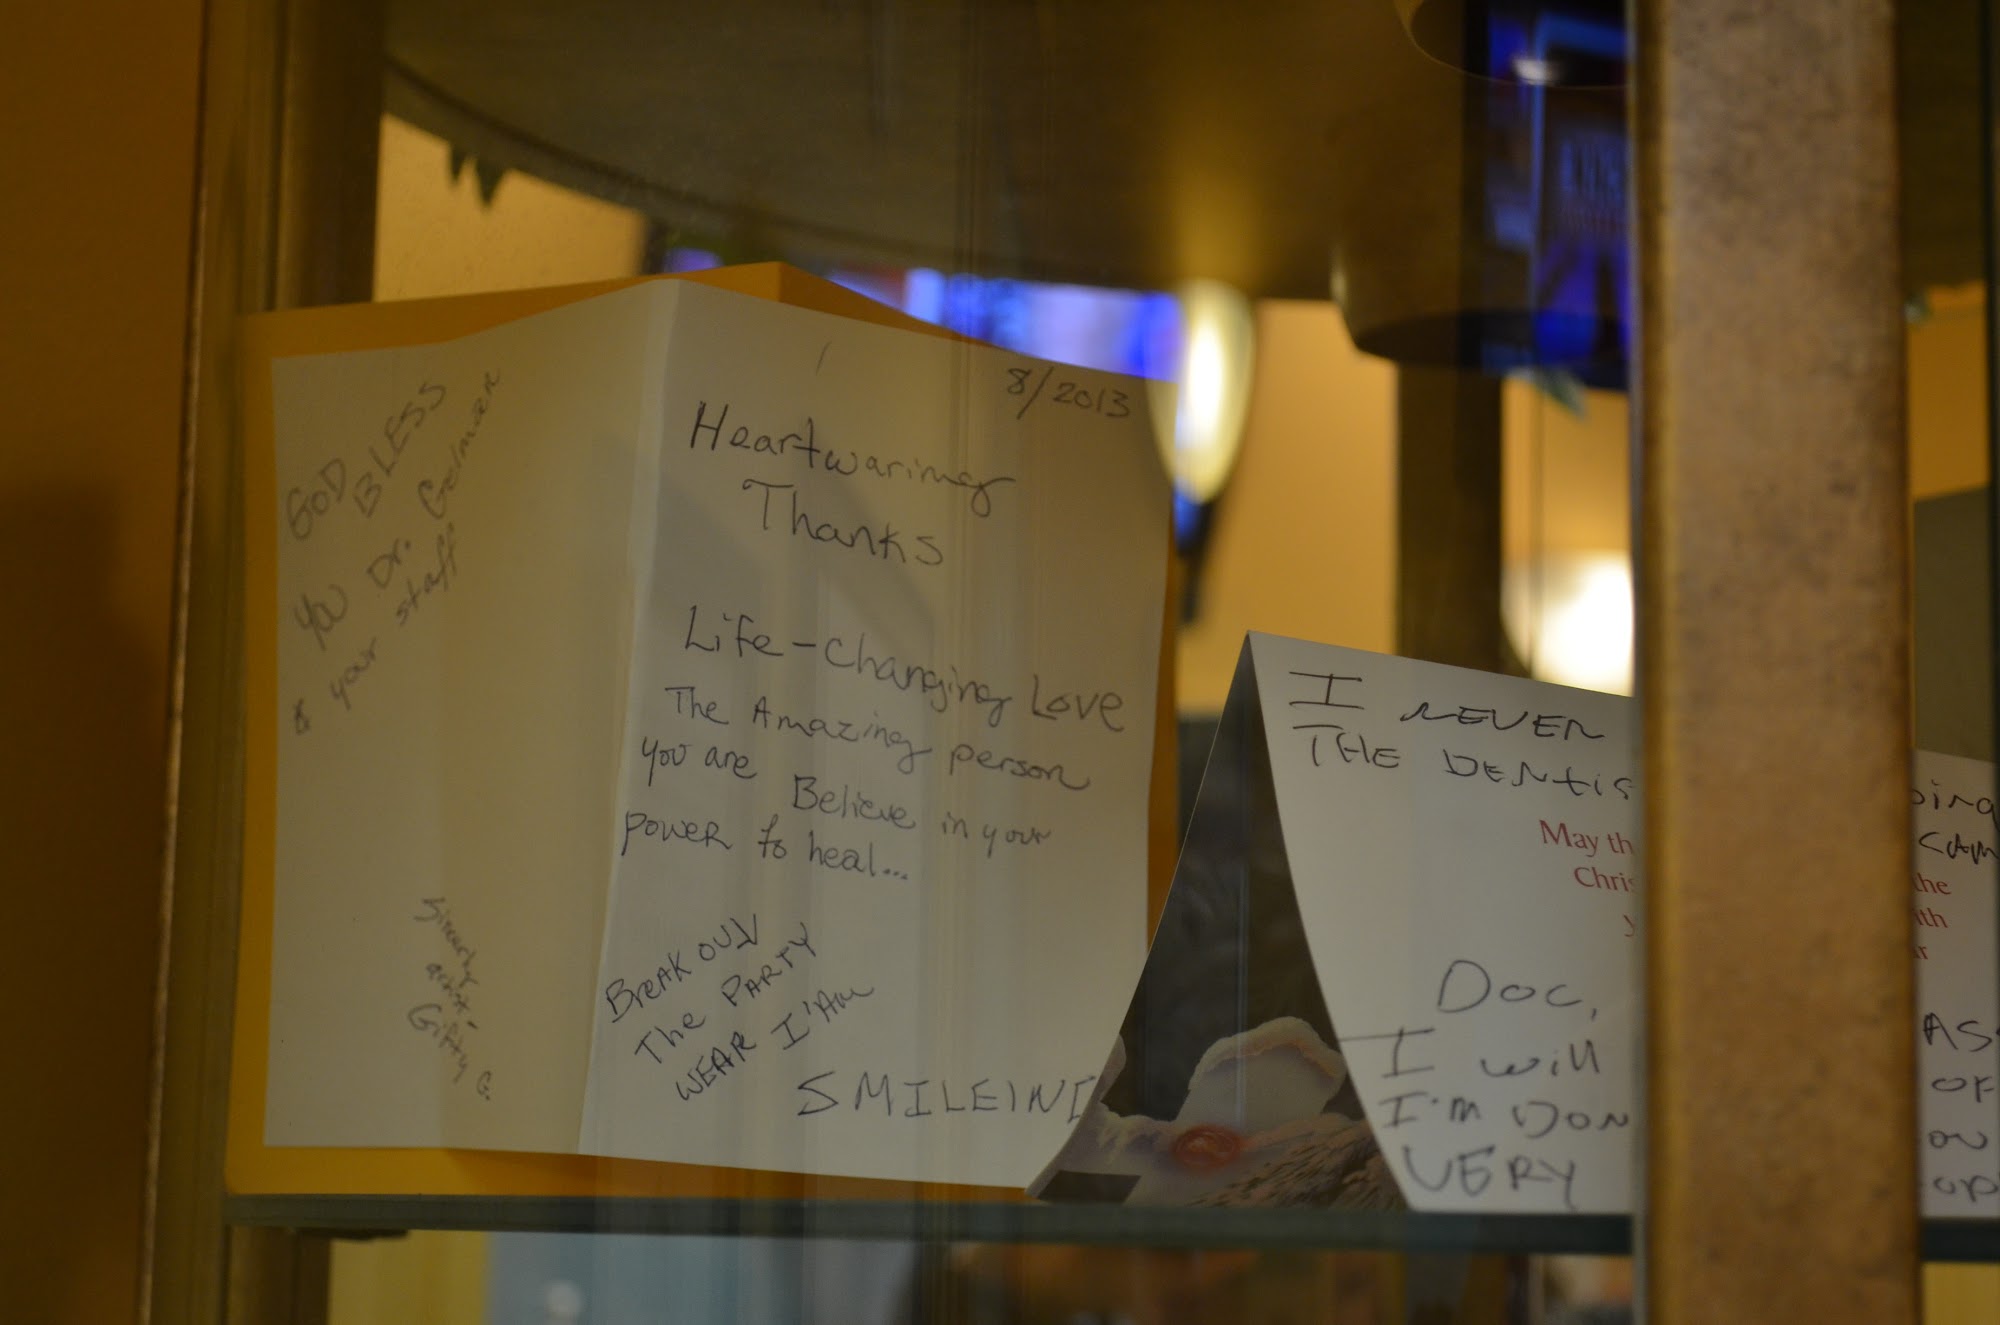 GOD BLESS
You Dr. Gelman
& your staff
Sincerly
artist-
Gifty G.
8/2013
Heartwaring
Thanks
Life-Changing Love
The Amazing person
you are Believe in your
power to heal...
Break OUT
The PARTY
WEAR I'Am
SMILEIN
I NEVER
THE DENTIS
May th
Chris
y
Doc,
I will
I'm DON
VERY
oing
CAM
the
ith
r
AS
OF
on
op